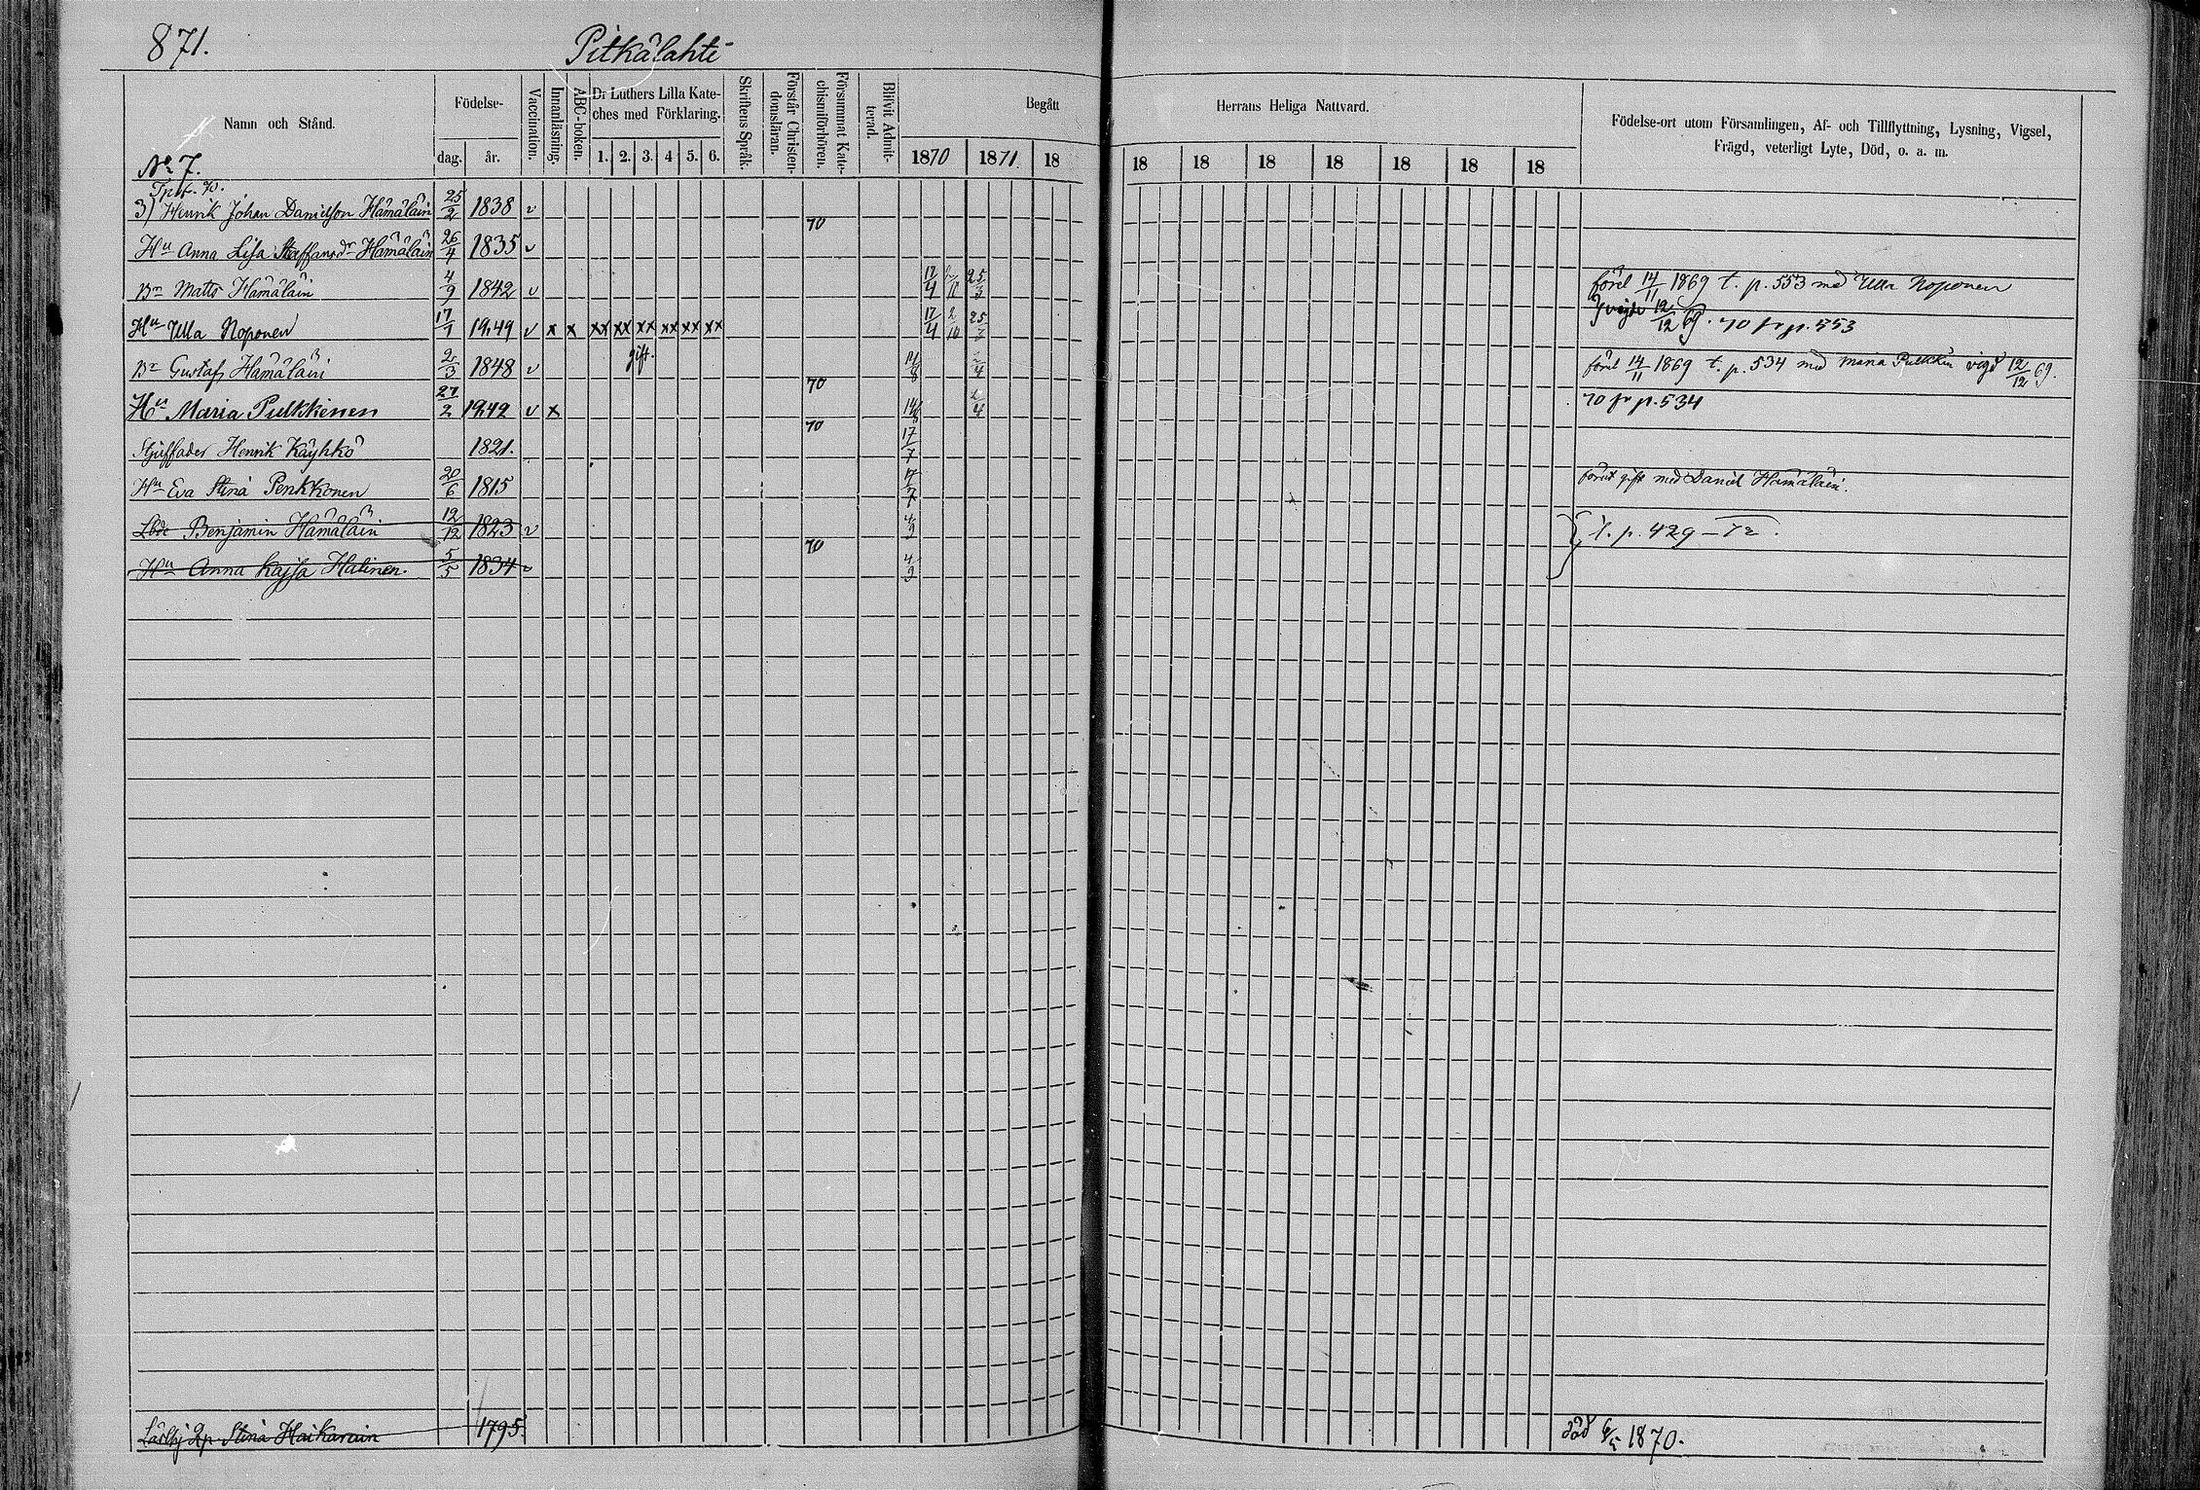 871.
Pitkälahti
Namn och Stånd.
Födelse-
dag. år.
Vaccination.
Innanläsning.
ABC-boken.
Dr Luthers Lilla Kate-
ches med Förklaring.
1. 2. 3. 4 5. 6.
Skriftens Språk.
Förstår Christen-
domsläran.
Försummat Kate-
chismiförhören.
Blifvit Admit-
terad.
Begått
Herrans Heliga Nattvard.
1870 1871. 18
18 18 18 18 18 18 18
Födelse-ort utom Församlingen, Af- och Tillflyttning, Lysning, Vigsel,
Frägd, veterligt Lyte, Död, o. a. m.
No 7.
3) Henrik Johan Danielson Hämäläin 25/2 1838 v 70
Hu Anna Lisa Staffansdr Hämäläin 26/4 1835 v
Br Matts Hämäläin 4/9 1842 v 25/3 förel 14/11 1869 t. p. 553 med Ulla Noponen
Hu Ulla Noponen 17/1 1849 v x x xx xx xx xx xx xx vigde 12/12 69. 70 fr p. 553
Br Gustaf Hämäläin 2/3 1848 v gift. 70 förel 14/11 1869 t. p. 534 med Maria Pulkkin vigd 12/12 69.
Hu Maria Pulkkinen 27/2 1842 v x 70 70 fr p. 534
Styffader Henrik Käyhkö 1821. 17/7
Hu Eva Stina Penkkonen 20/6 1815 17/7 förut gift med Daniel Hämäläin.
Benjamin Hämäläin 12/12 1823 v 4/9 t. p. 429 – 72.
Hu Anna Kajsa Halinen. 5/5 1834 v 70 4/9
Stina Haikarain 1795. död 1870.